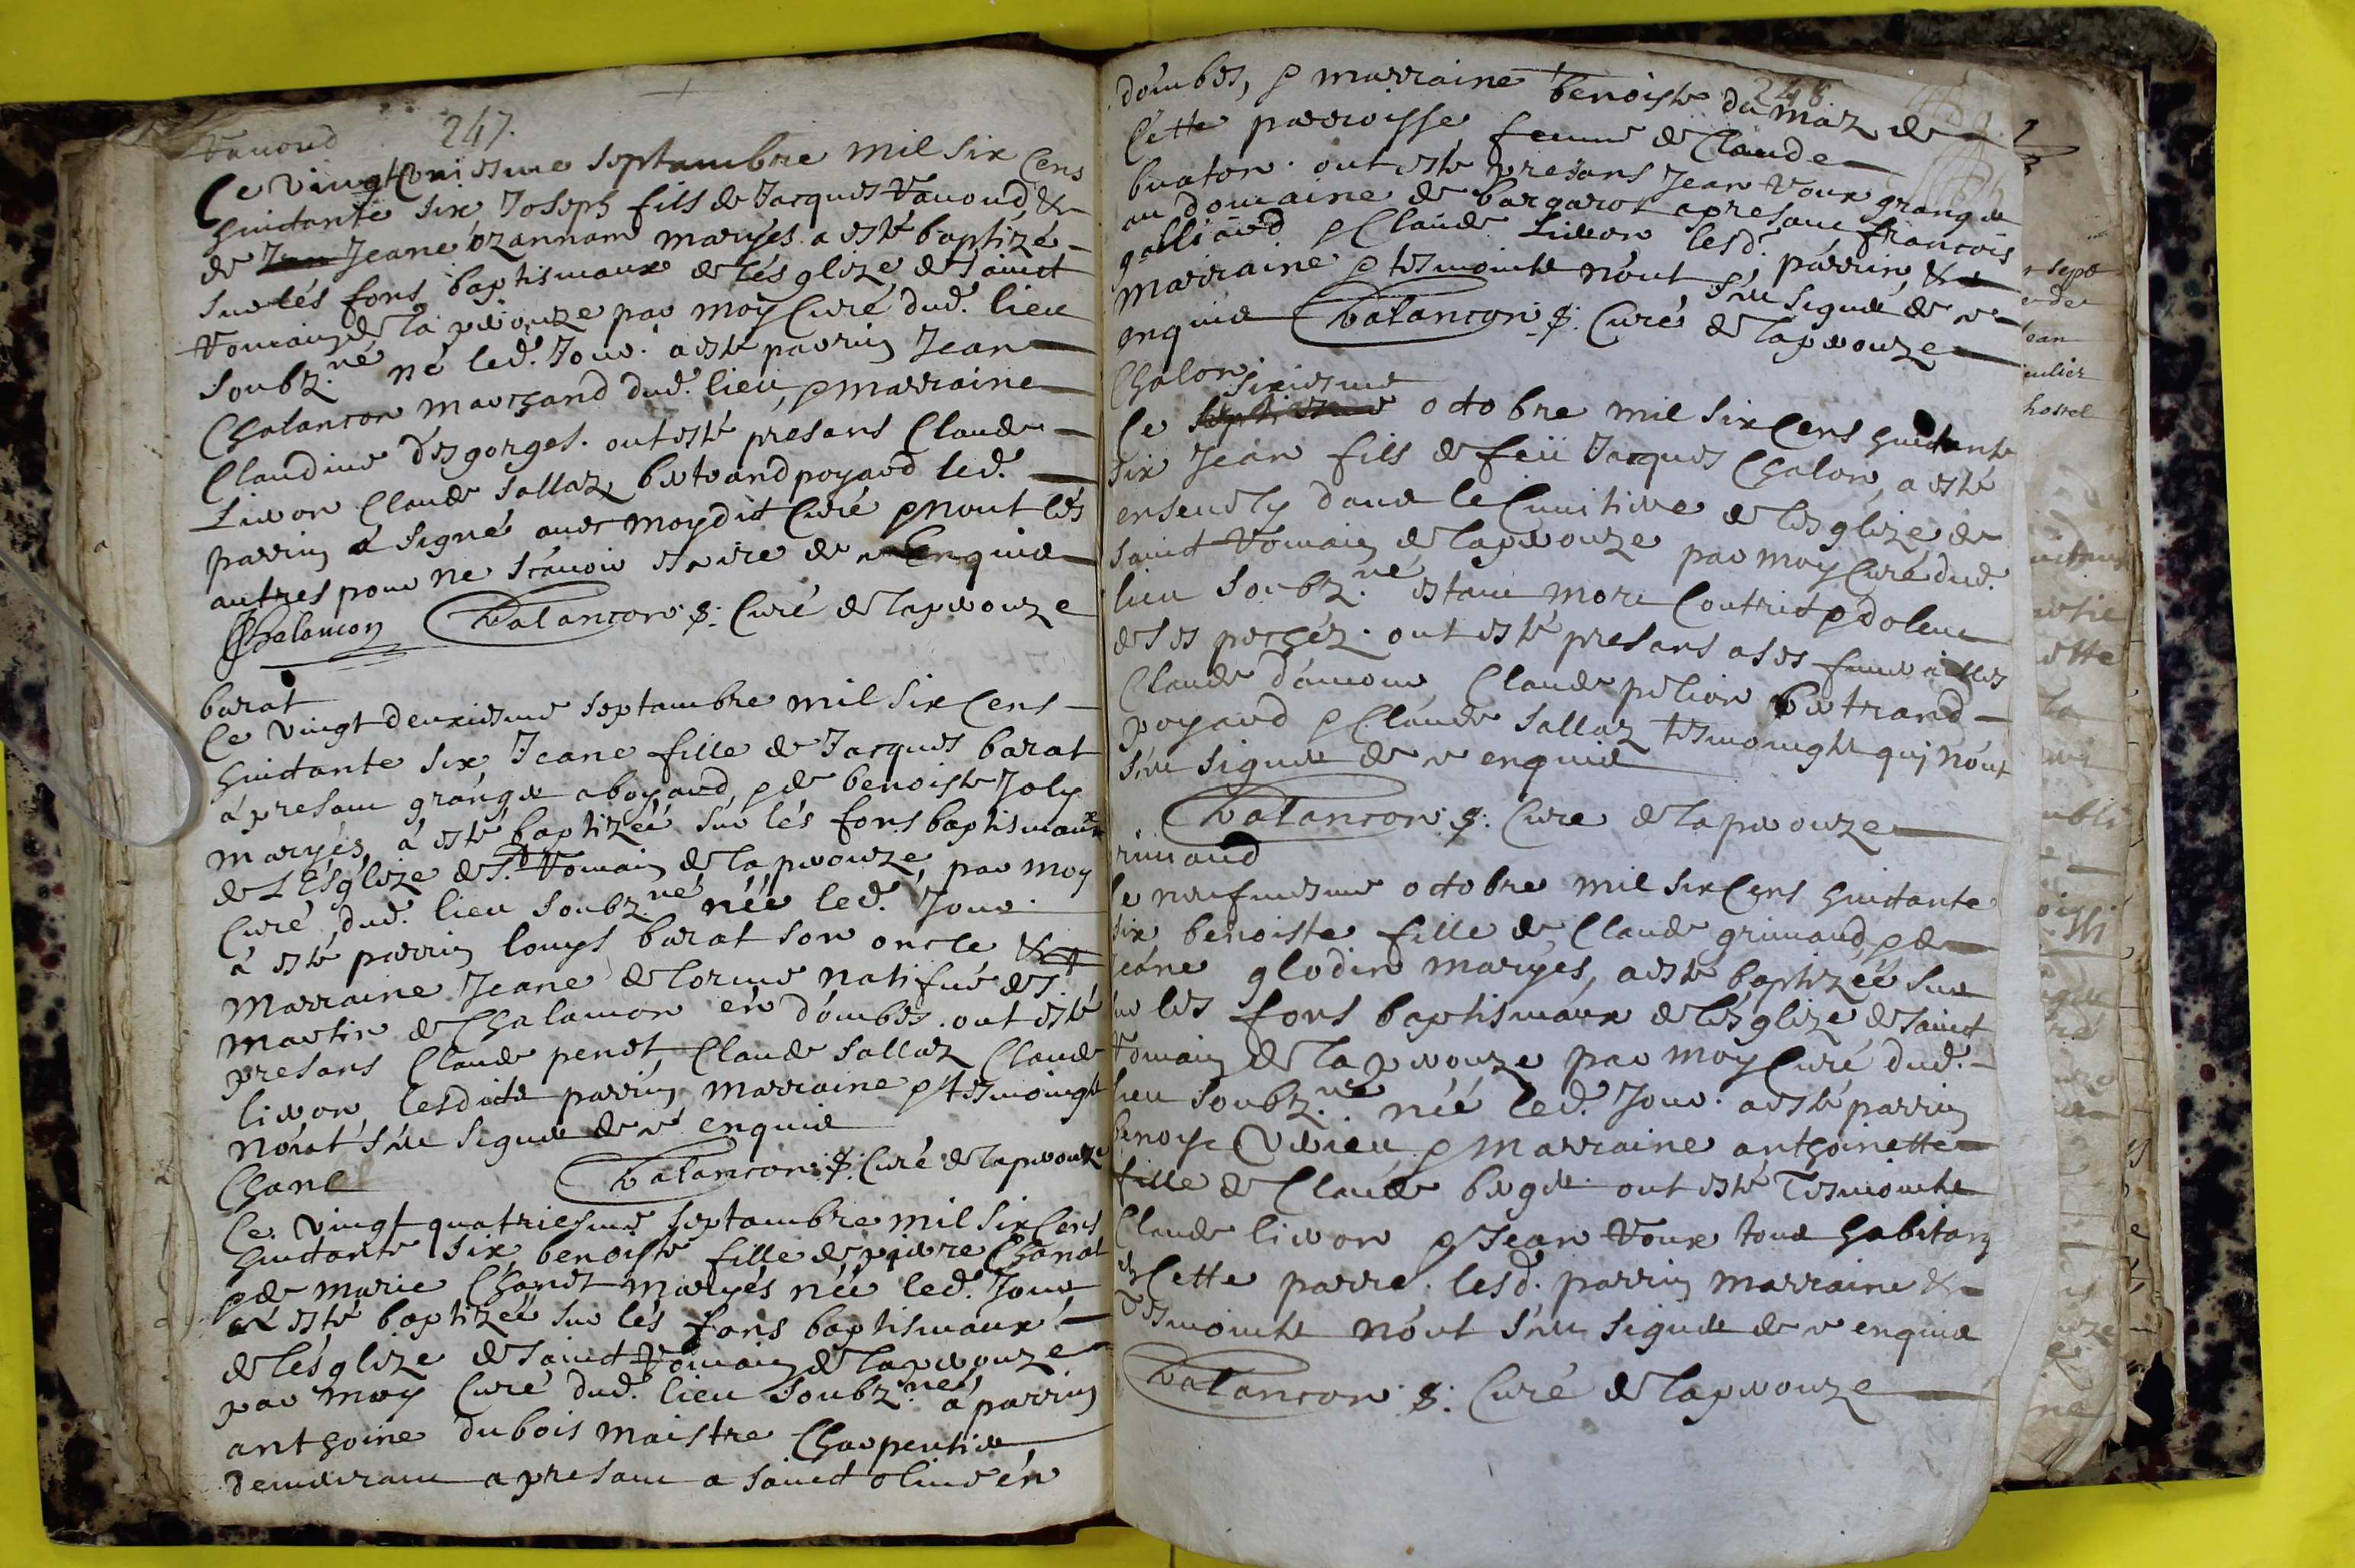 Vanoud
247.
Ce vingtuniesme septambre mil six Cens
huictante six Joseph fils de Jacques Vanoud, &
de Jeane ozannam maryés a esté baptizé
sur lés fons baptismaux de l'ésglize de sainct
Romain de la peirouze par moy Curé dud. lieu
soubz.né né led. Jour. a esté parrin Jean
Chalancon marchand dud. lieu, & marraine
Claudine désgorges. ont esté presans Claude
Livon Claude sallaz, bertrand poyard led.
parrin á signé avec moydict Curé & nont lés
autres pour ne scavoir escrire de ce Enquis
Chalancon Chalancon p. Curé de lapeirouze
barat
Ce vingt deuxiesme septambre mil six Cens
huictante six Jeane fille de Jacques barat
á presant granger aboyard, & de benoiste Joly
maryés, á esté baptizéé sur lés fons baptismaux
de L'Ésglize de St. Romain de lapeirouze, par moy
Curé dud. lieu soubz.né néé led. Jour.
á esté parrin louys barat son oncle &
marraine Jeane delorme natifve de St
martin de Chalamon én dómbes. ont esté
presans Claude penet, Claude sallaz Claude
livon, lesdicts parrin, marraine & tesmoingts
nónt sceu signer de ce enquis
Chalancon p. Curé de lapeirouze
Chanel
Ce vingt quatriesme septambre mil six Cens
huictante six, benoiste fille de pierre Chanal
& de marie Chanet maryés néé led. Jour
a esté baptizéé sur lés fons baptismaux
de lésglize de sainct Romain de lapeirouze
par moy Curé dud. lieu soubz.né, á parrin
anthoine dubois maistre Charpentier,
demeurant a presant a sainct olive én
248.
dómbes, & marraine benoiste dumaz de
Cette parroisse femme de Claude
buaton. ont esté presans Jean Roux granger
au domaine de bargarot apresant francois
galliard & Claude Livon lesd. parrin, &
marraine & tesmoints nónt sceu signer de ce
enquis Chalancon p. Curé de lapeirouze
Chalon
sixiesme
Ce septiesme octobre mil six Cens huictante
six Jean fils de feü Jacques Chalon, a esté
ensevely dans le Cimitiere de lésglize de
sainct Romain de lapeirouze par moy Curé dud.
lieu soubz.né estant mort Contrict & dolent
de ses pechéz. ont esté presans a ses funerailles
Claude dámour, Claude pelion bertrand
poyard & Claude sallaz tesmoingts quj nónt
sceu signer de ce enquis
Chalancon p. Cure de lapeirouze
rimaud
le neufiesme octobre mil six Cens huictante
six benoiste fille de Claude grimaud, & de
Jeáne glodin maryés, a esté baptizéé sur
sur lés fons baptismáux de lésglize de sainct
Romain de lapeirouze par moy Curé dud.
lieu soubz.né néé led. Jour. a esté parrin
benoist Verieu & marraine anthoinette
fille de Claude berger. ont esté Tesmoints
Claude livon & Jean Roux tous habitans
én Cette parre. lesd. parrin marraine &
tesmoints nónt sceu signer de ce enquis
Chalancon p. Curé de lapeirouze